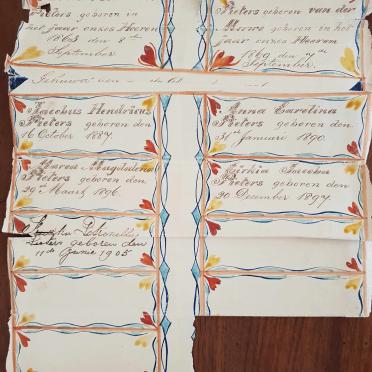 Pieters geboren in
het jaar onzes Heeren
September.
Pieters geboren van der
Merwe geboren in het
jaar onzes Heeren
1869 den
September.
Jacobus Hendrikus
Pieters geboren den
16 October 1887.
Anna Carolina
Pieters geboren den
Januari 1890.
Maria Magdalena
Pieters geboren den
29st Maart 1896.
Jacoba
Pieters geboren den
20 December 1897.
Petronella
Pieters geboren den
11de Junie 1905